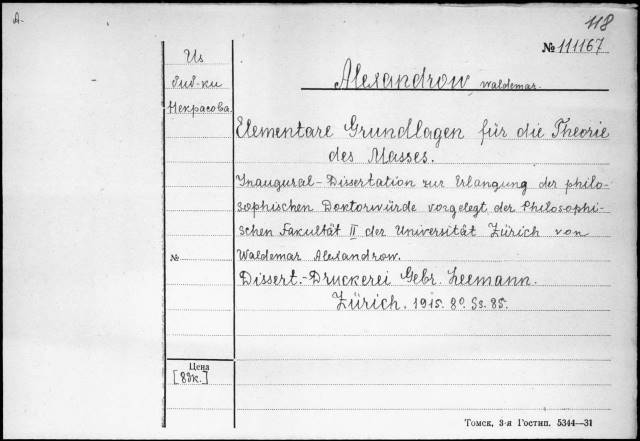 A.
118
№ 111167
Из
биб-ки
Некрасова.
Alexandrow, Waldemar.
Elementare Grundlagen für die Theorie
des Masses.
Inaugural-Dissertation zur Erlangung der philo-
sophischen Doktorwürde vorgelegt der Philosophi-
schen Fakultät II der Universität Zürich von
№ Waldemar Alexandrow.
Dissert.-Druckerei Gebr. Leemann.
Zürich. 1915. 8º. Ss. 85.
Цена
[8дк.]
Томск, 3-я Гостип. 5344—31